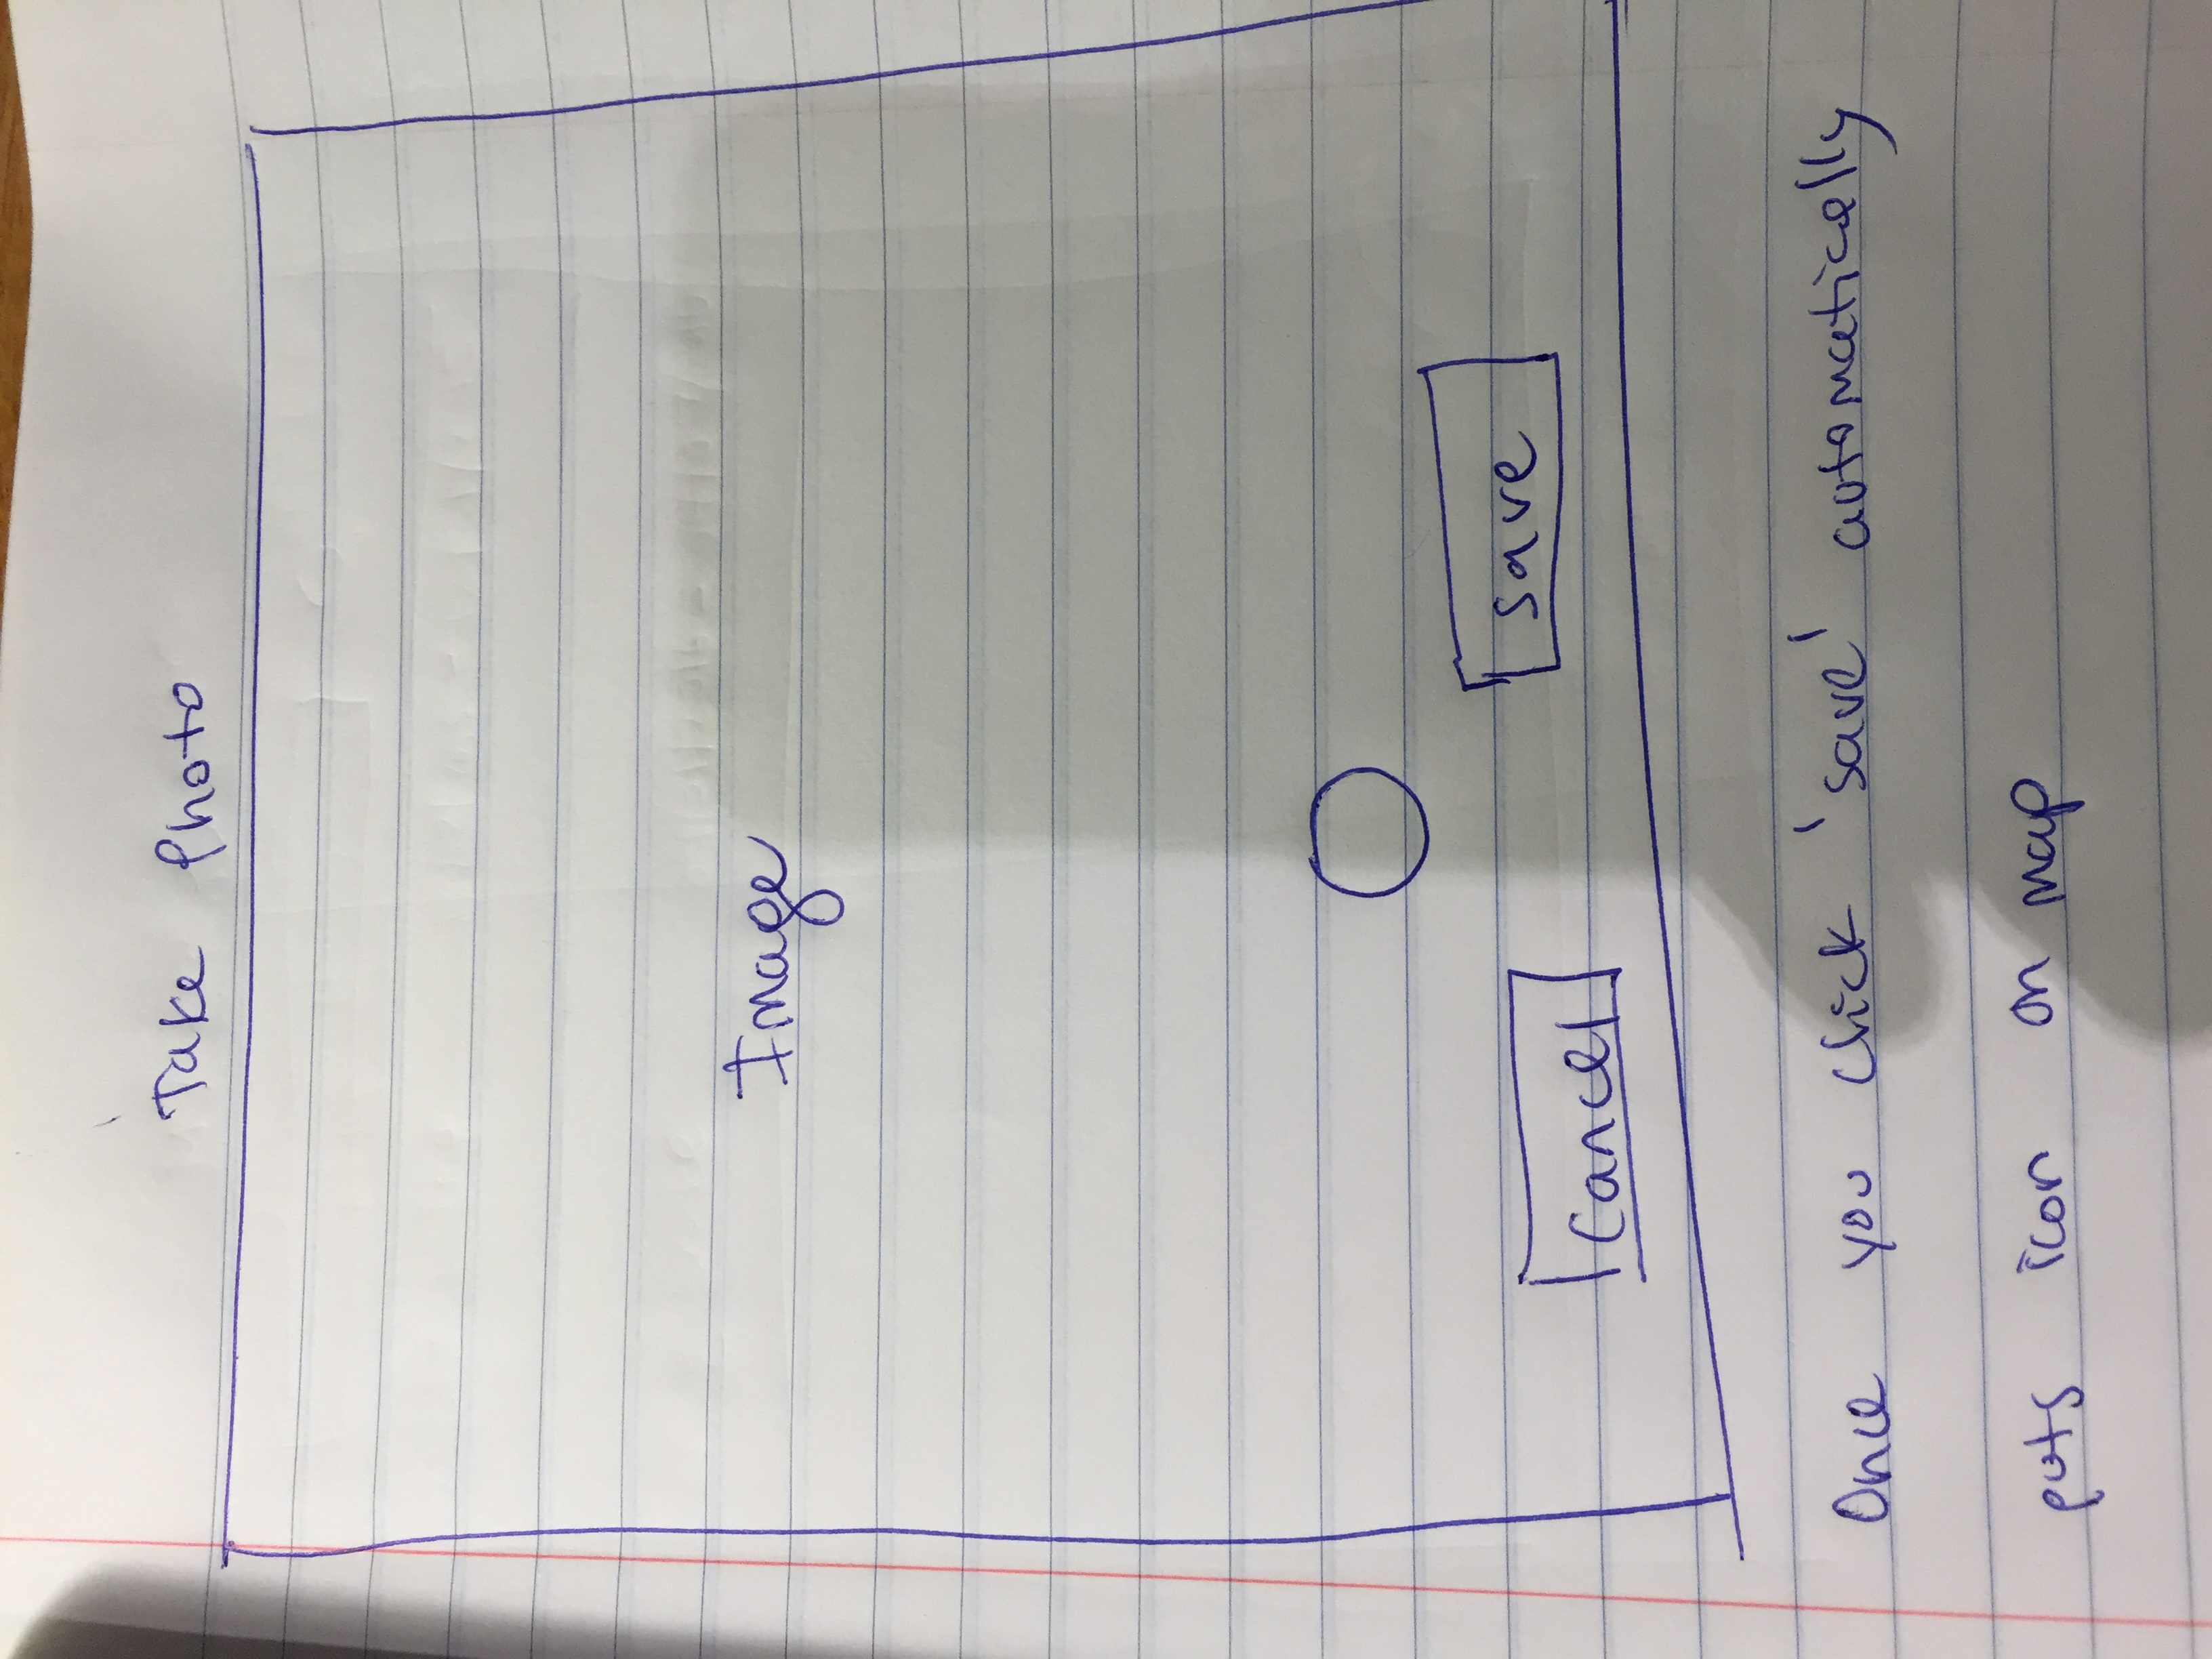 Take Photo
Image
save
cancel
Once you click 'save' automatically
puts icon on map